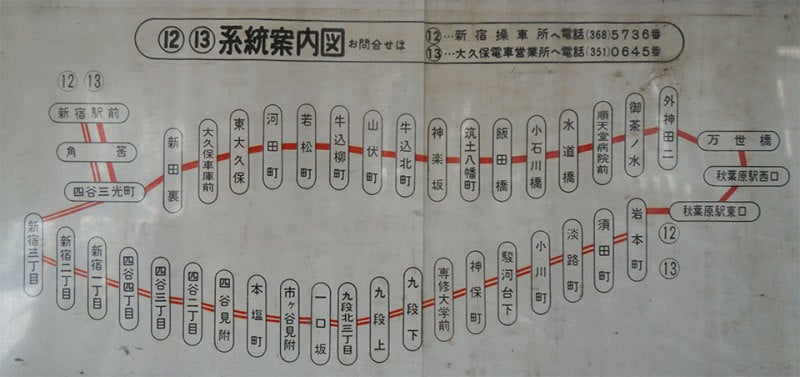 ⑫ ⑬ 系統案内図 お問合せは
⑫…新宿操車所へ電話(368)5736番
⑬…大久保電車営業所へ電話(351)0645番
⑫ ⑬
新宿駅前
角筈
四谷三光町
新田裏
大久保車庫前
東大久保
河田町
若松町
牛込柳町
山伏町
牛込北町
神楽坂
筑土八幡町
飯田橋
小石川橋
水道橋
順天堂病院前
御茶ノ水
外神田二
万世橋
秋葉原駅西口
秋葉原駅東口
⑫
⑬
岩本町
須田町
淡路町
小川町
駿河台下
神保町
専修大学前
九段下
九段上
九段北三丁目
一口坂
市ヶ谷見附
本塩町
四谷見附
四谷二丁目
四谷三丁目
四谷四丁目
新宿一丁目
新宿二丁目
新宿三丁目